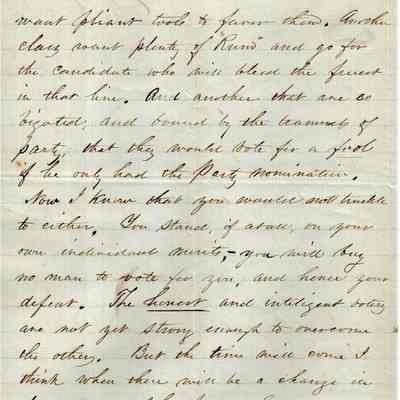 want pliant tools to favor them. Another
class want plenty of "Rum" and go for
the candidate who will bleed the freest
in that line. And another that are so
bigoted, and bound by the trammels of
party, that they would vote for a fool
if he only had the Party nomination.
Now I know that you would not truckle
to either. You stand, if at all, on your
own individual merits, – you will buy
no man to vote for you, and hence your
defeat. The honest and intelligent voters
are not yet strong enough to overcome
the others. But the time will come I
think when there will be a change in